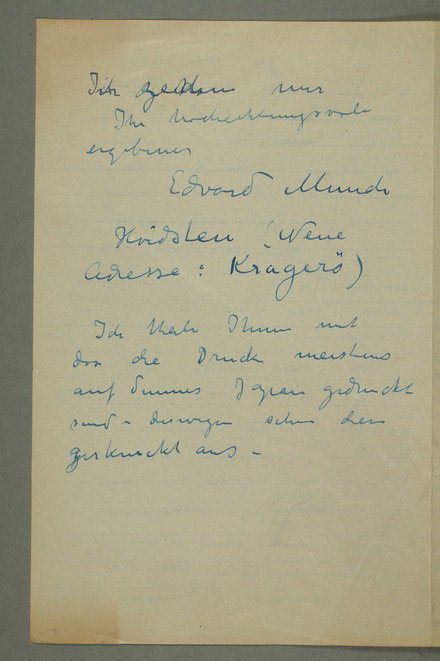 Ich zeichne mir
Ihr hochachtungsvoll
ergebener
Edvard Munch
Hvidsten (Neue
Adresse: Kragerö)
Ich theile Ihnen mit
das die Drucke meistens
auf dünnes Japan gedruckt
sind – deswegen sehen diese
zerknickt aus –